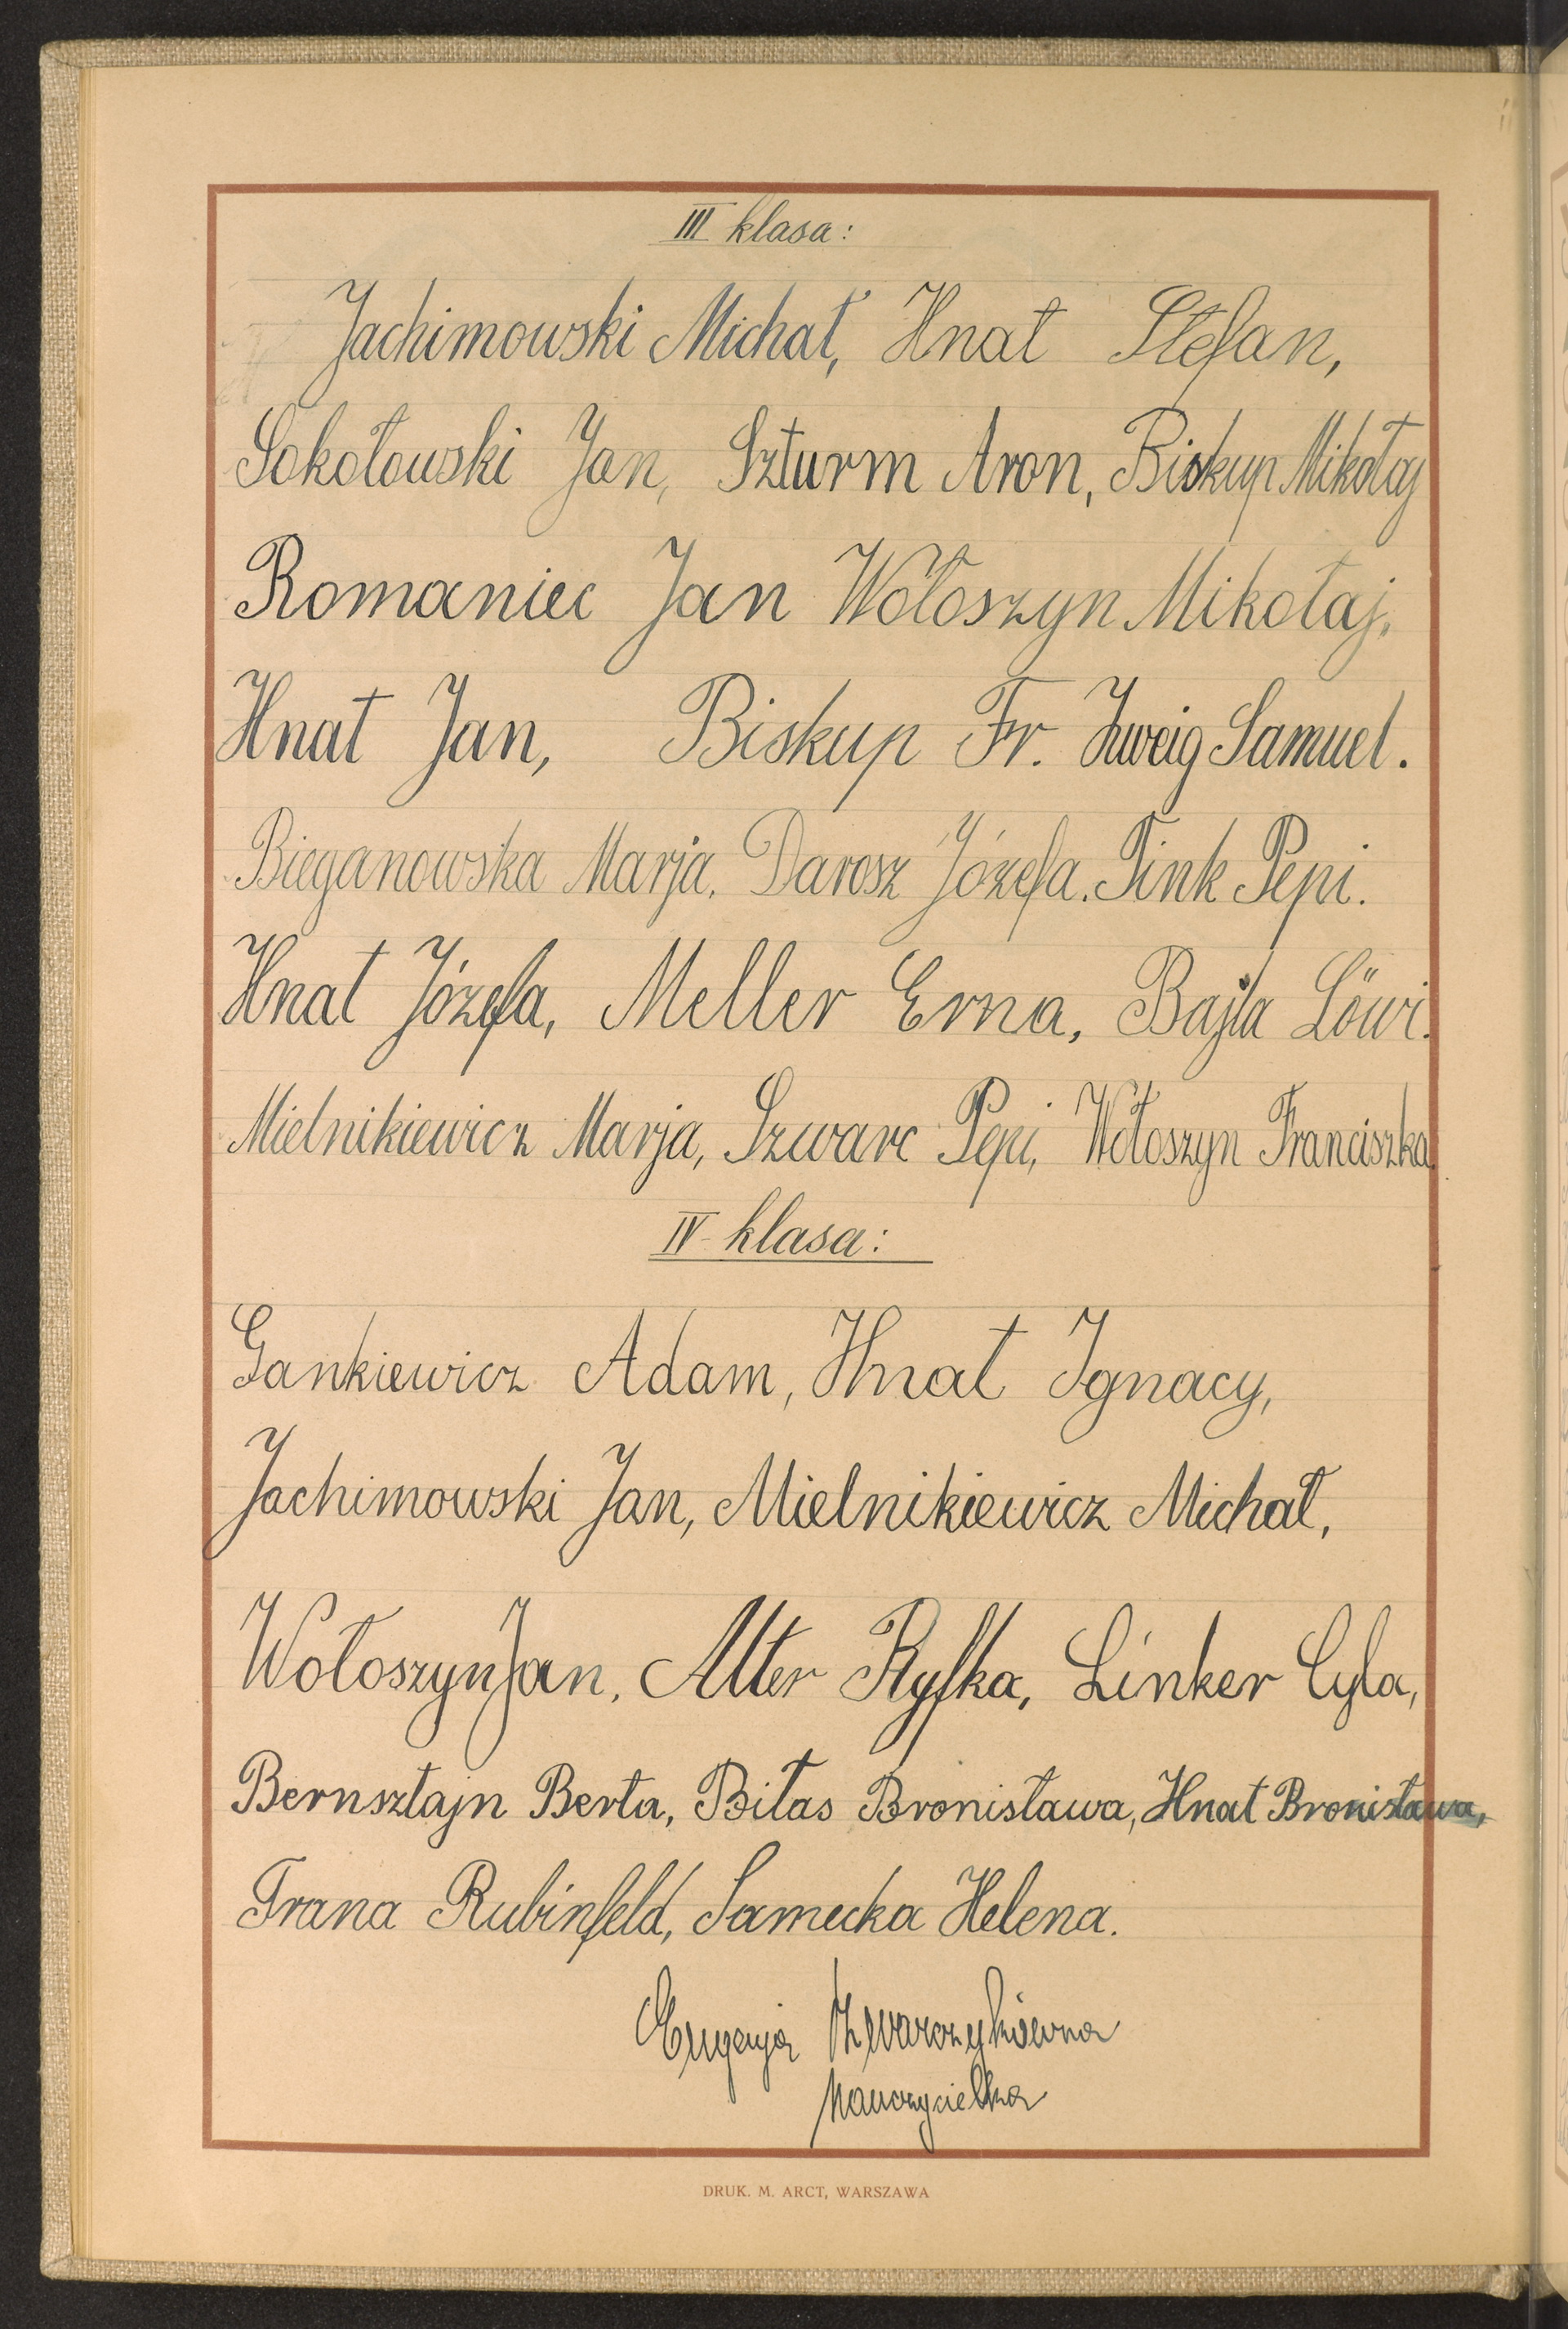 III klasa:
Jachimowski Michał, Hnat Stefan,
Sokołowski Jan, Szturm Aron, Biskup Mikołaj
Romaniec Jan Wołoszyn Mikołaj,
Hnat Jan, Biskup Fr. Zweig Samuel.
Bieganowska Marja, Darosz Józefa. Fink Pepi.
Hnat Józefa, Meller Erna, Bajla Löwi.
Mielnikiewicz Marja, Szwarc Pepi, Wołoszyn Franciszka.
IV klasa:
Gankiewicz Adam, Hnat Ignacy,
Jachimowski Jan, Mielnikiewicz Michał,
Wołoszyn Jan, Alter Ryfka, Linker Cyla,
Bernsztajn Berta, Biłas Bronisława, Hnat Bronisława,
Frana Rubinfeld, Samecka Helena.
Eugenja
Nauczycielka
DRUK. M. ARCT, WARSZAWA